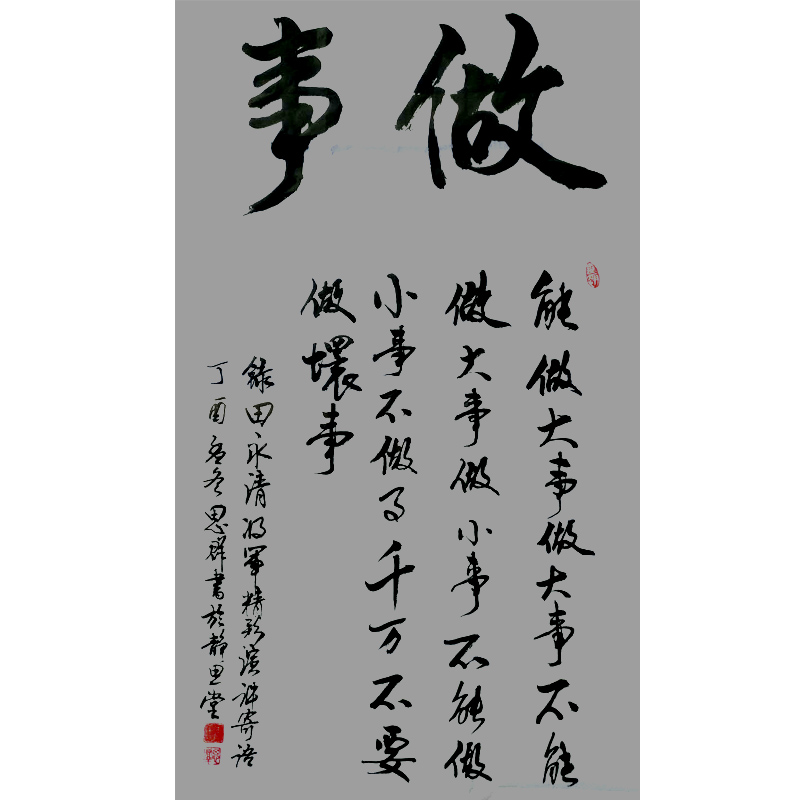 做事
能做大事做大事不能
做大事做小事不能做
小事不做了千万不要
做壞事
錄田永清将軍精彩演讲寄语
丁酉孟冬思群書於静思堂